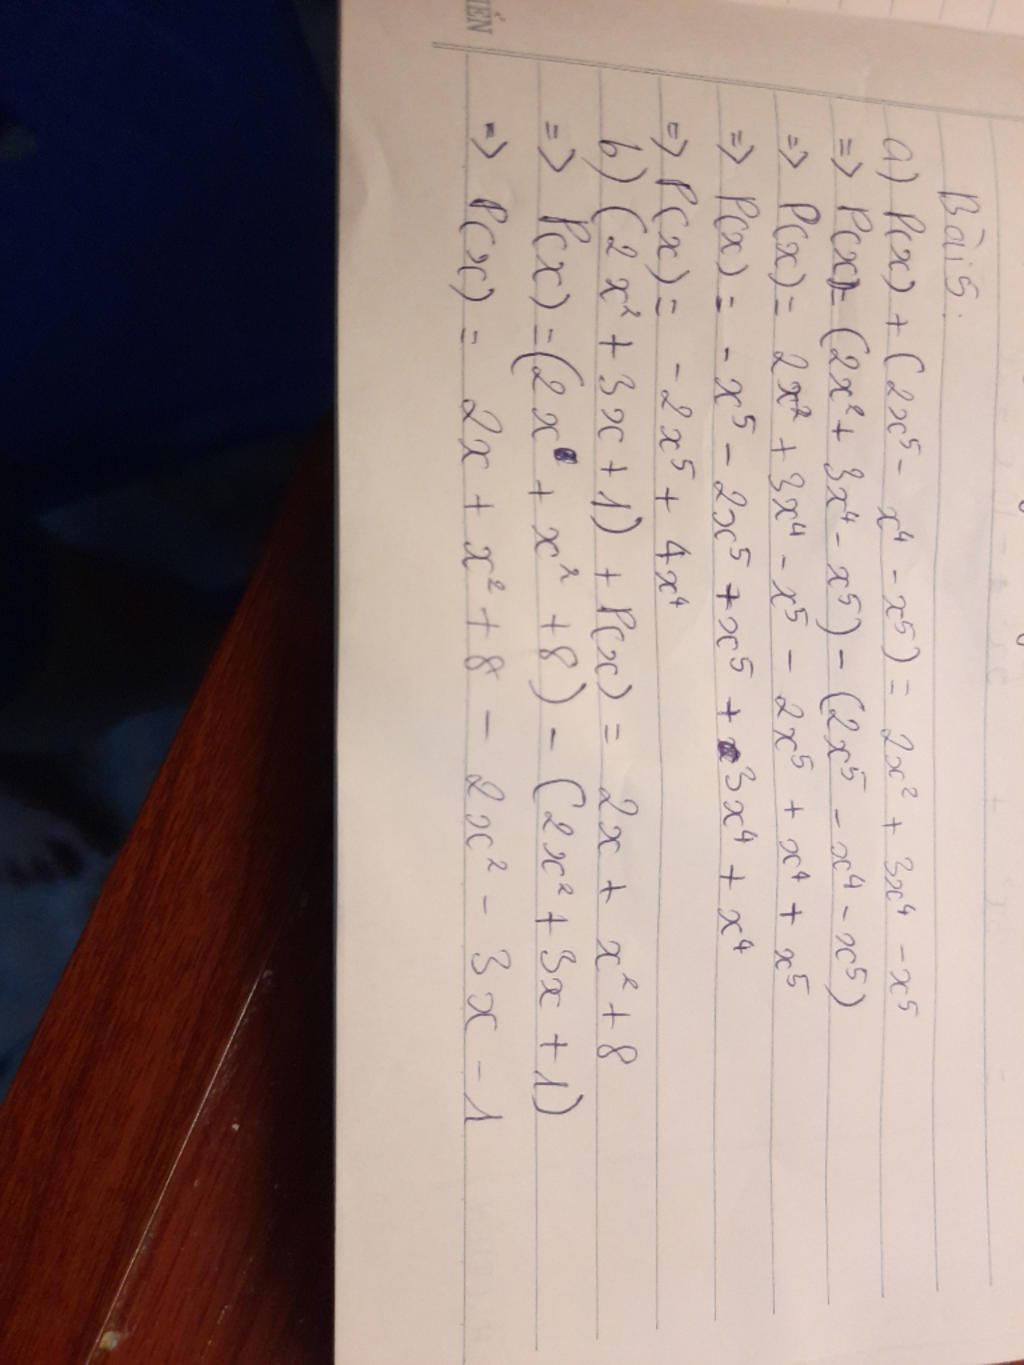 Bài 5:
a) P(x) + (2x⁵ - x⁴ - x⁵) = 2x² + 3x⁴ - x⁵
=> P(x) = (2x² + 3x⁴ - x⁵) - (2x⁵ - x⁴ - x⁵)
=> P(x) = 2x² + 3x⁴ - x⁵ - 2x⁵ + x⁴ + x⁵
=> P(x) = - x⁵ - 2x⁵ + x⁵ + 3x⁴ + x⁴
=> P(x) = - 2x⁵ + 4x⁴
b) (2x² + 3x + 1) + P(x) = 2x + x² + 8
=> P(x) = (2x + x² + 8) - (2x² + 3x + 1)
=> P(x) = 2x + x² + 8 - 2x² - 3x - 1